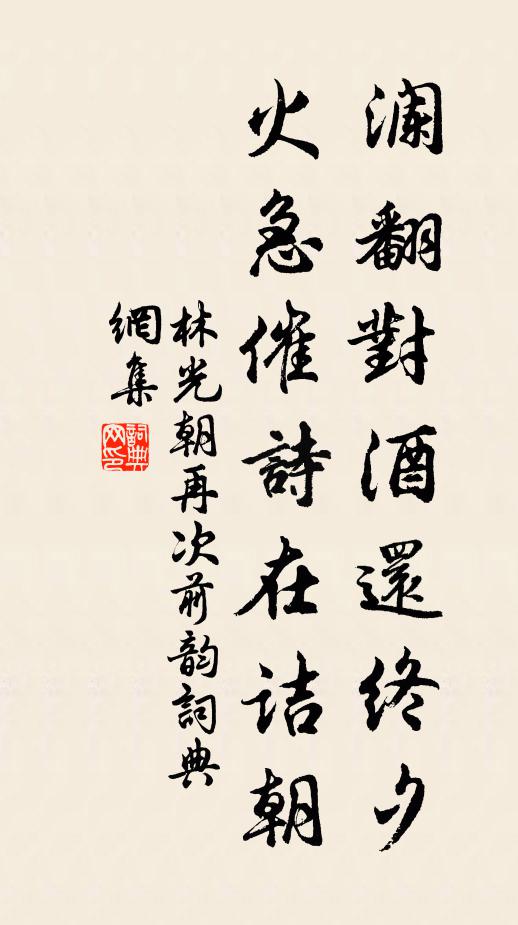 瀾翻對酒還終夕
火急催詩在詰朝
林光朝再次前韵詞典
網集
詞典
网印